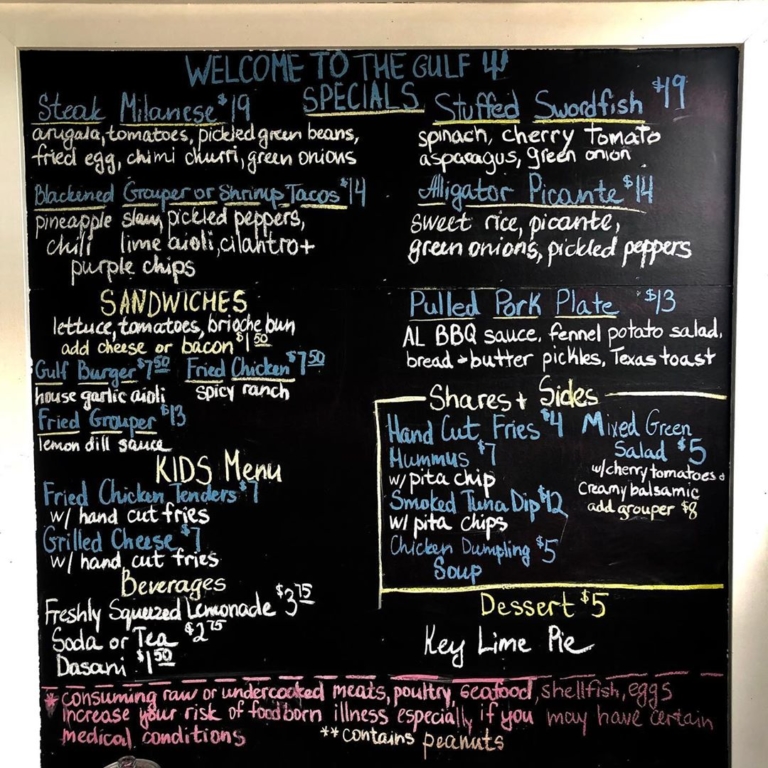 WELCOME TO THE GULF
SPECIALS
Steak Milanese $19
arugala, tomatoes, pickled green beans,
fried egg, chimi churri, green onions
Blackened Grouper or Shrimp Tacos $14
pineapple slaw, pickled peppers,
chili lime aioli, cilantro +
purple chips
Stuffed Swordfish $19
spinach, cherry tomato
asparagus, green onion
Alligator Picante $14
sweet rice, picante,
green onions, pickled peppers
SANDWICHES
lettuce, tomatoes, brioche bun
add cheese or bacon $1.50
Gulf Burger $7.50 Fried Chicken $7.50
house garlic aioli spicy ranch
Fried Grouper $13
lemon dill sauce
KIDS Menu
Fried Chicken Tenders $7
w/ hand cut fries
Grilled Cheese $7
w/ hand cut fries
Beverages
Freshly Squeezed Lemonade $3.75
Soda or Tea $2.75
Dasani $1.50
Pulled Pork Plate $13
AL BBQ sauce, fennel potato salad,
bread + butter pickles, Texas toast
Shares + Sides
Hand Cut Fries $4
Hummus $7
w/ pita chip
Smoked Tuna Dip $12
w/ pita chips
Chicken Dumpling $5
Soup
Mixed Green
Salad $5
w/ cherry tomatoes +
creamy balsamic
add grouper $8
Dessert $5
Key Lime Pie
* consuming raw or undercooked meats, poultry, seafood, shellfish, eggs
increase your risk of foodborn illness especially if you may have certain
medical conditions ** contains peanuts